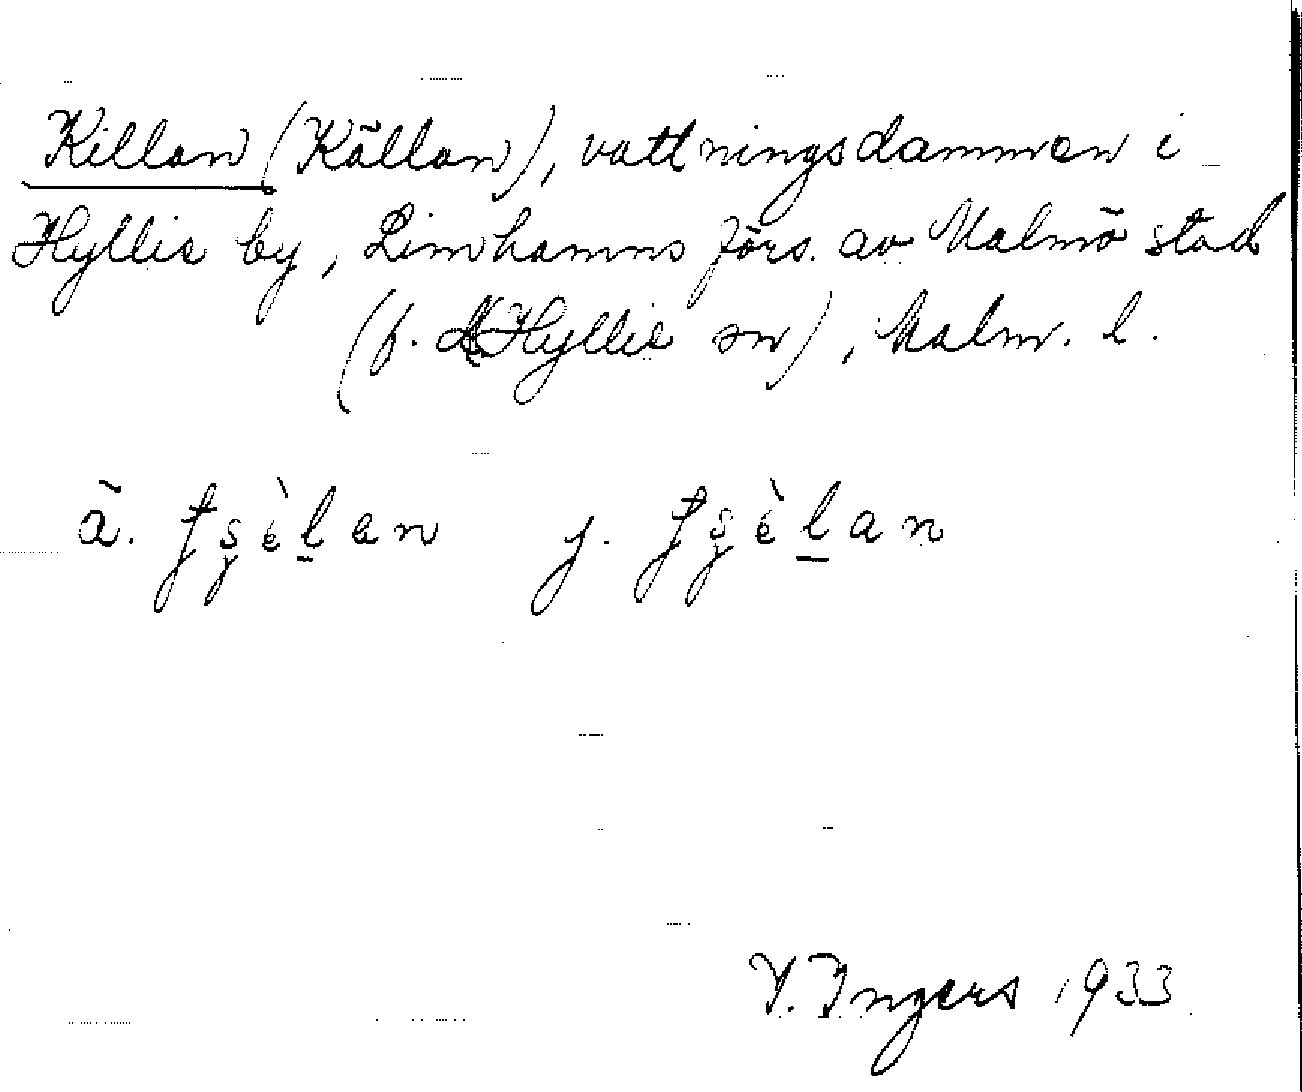 Killan (Källan), vattningsdammen i
Hyllie by, Limhamns förs. av Malmö stad
(f. Hyllie sn), Malm. l.
ä. j.
I. Ingers 1933